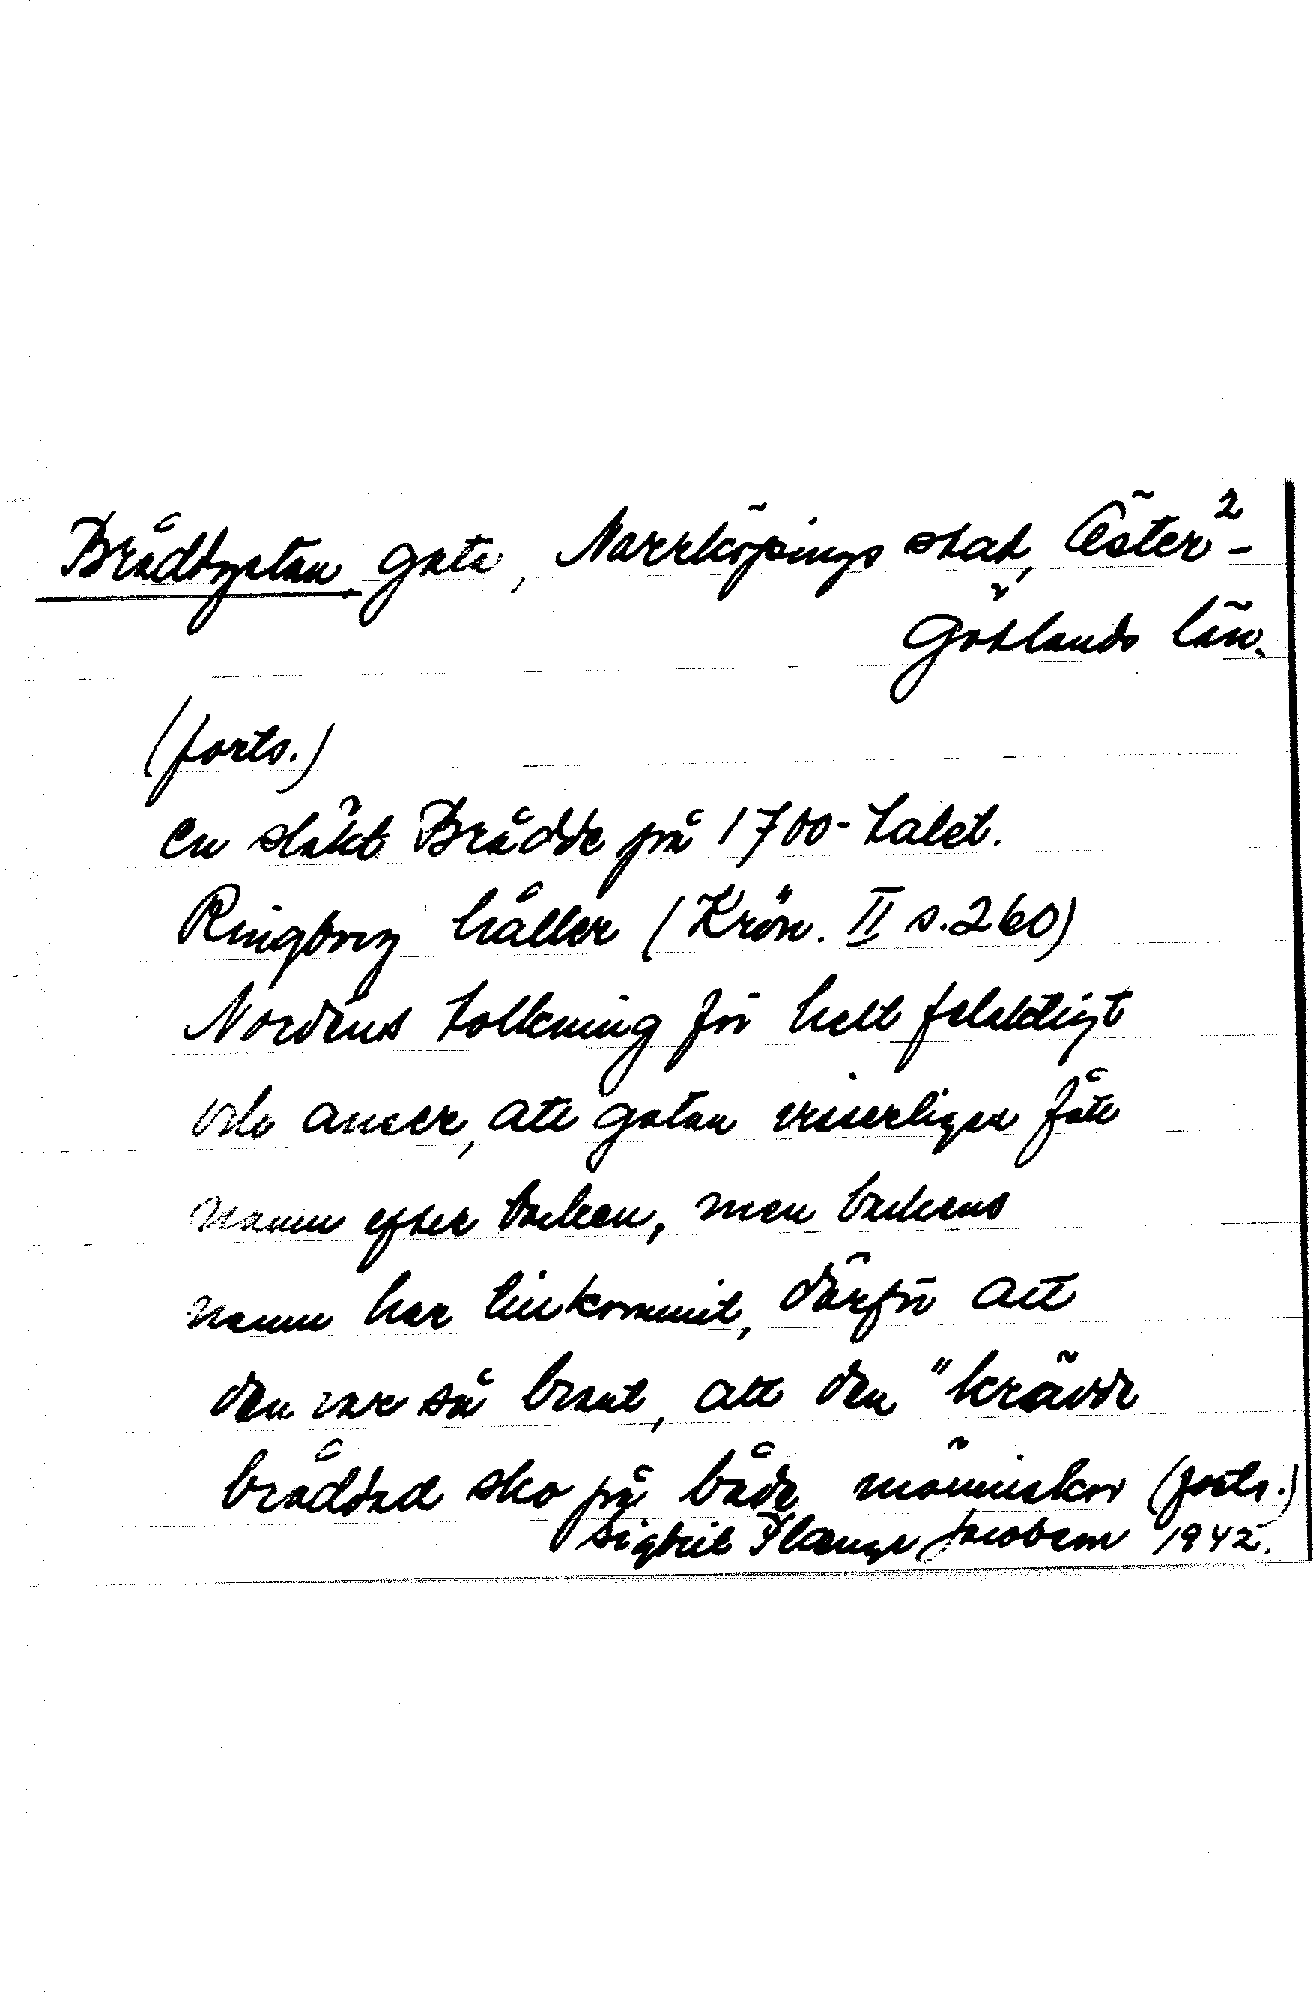 2
Bråddgatan, gata, Norrköpings stad, Öster-
götlands län.
(forts.)
en släkt Brådde på 1700-talet.
Ringborg håller (Krön. II s. 260)
Nordéns tolkning för helt felaktigt
och anser, att gatan visserligen fått
namn efter backen, men backens
namn har tillkommit, därför att
den var så brant, att den "krävde
bråddad sko på både människor (forts.)
Sigbrit Plænge Jacobson 1942.